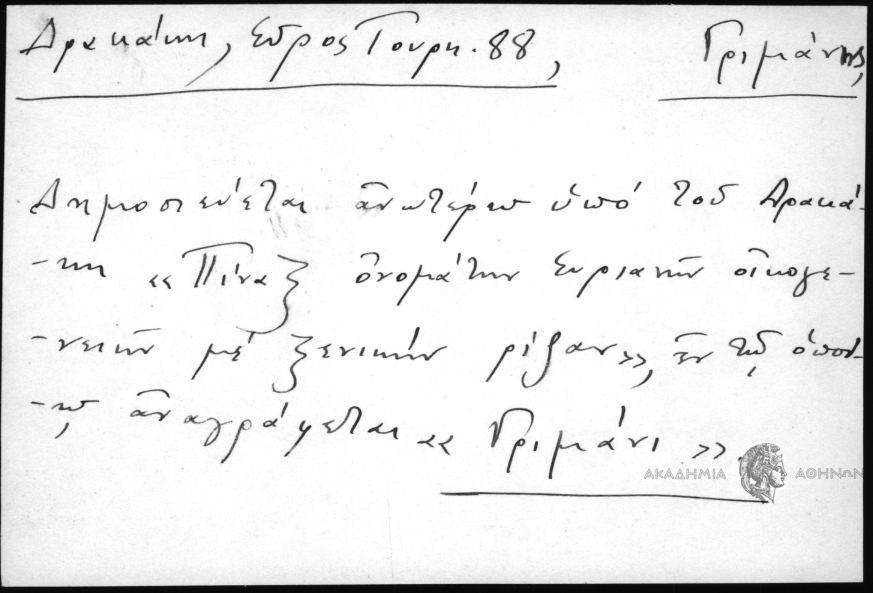 Δρακάκη, Σῦρος Τουρκ. 88, Γριμάνης,
Δημοσιεύεται ἀνωτέρω ὑπό τοῦ Δρακά-
-κη «Πίναξ ὀνομάτων Συριανῶν οἰκογε-
-νειῶν μέ ξενικήν ρίζαν», ἐν τῷ ὁποί-
-ῳ ἀναγράφεται «Γριμάνι».
ΑΚΑΔΗΜΙΑ ΑΘΗΝΩΝ